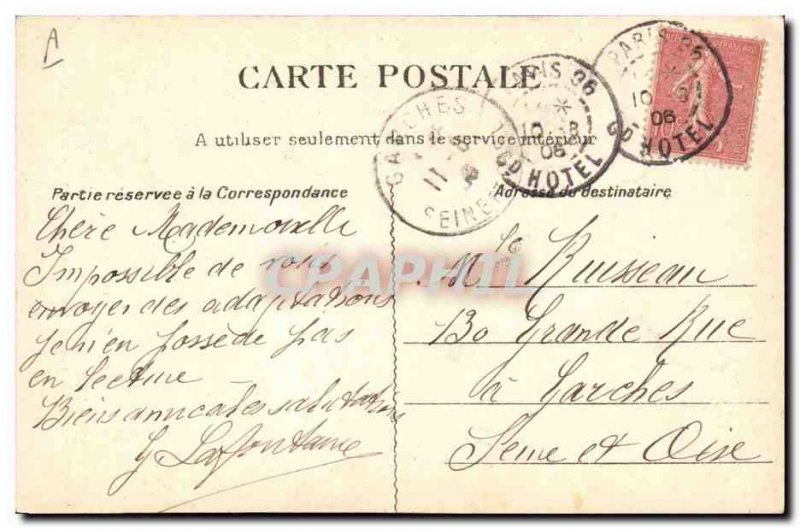 A
CARTE POSTALE
A utiliser seulement dans le service intérieur
PARIS 96
10 - 8
06
Gd HOTEL
PARIS 96
10 - 8
06
Gd HOTEL
GARCHES
11
SEINE
Partie réservée à la Correspondance
Adresse du destinataire
Chère Mademoiselle
Impossible de vous
envoyer des adaptations
Je n'en possède pas
en lecture
Biens amicales salutations
G Lafontaine
CPAPHIL
Mlle Ruisseau
130 Grande Rue
à Garches
Seine et Oise